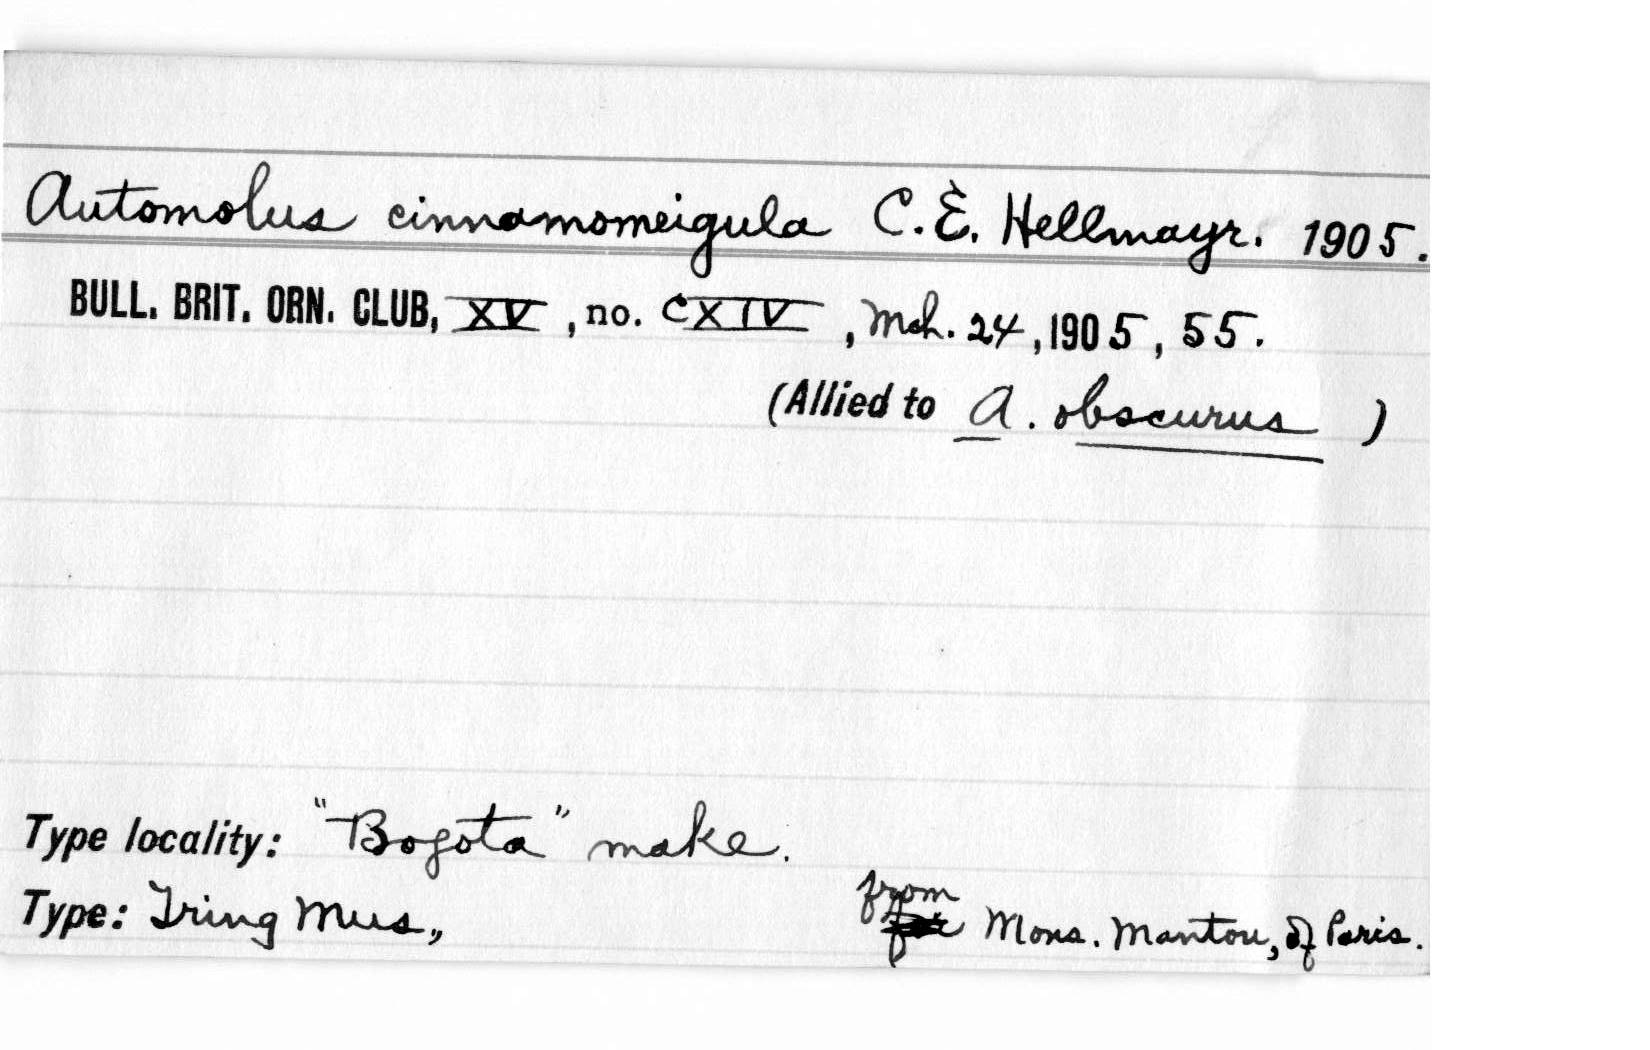 Automolus cinnamomeigula C. E. Hellmayr. 1905.
BULL. BRIT. ORN. CLUB, XV, no. CXIV, Mch. 24, 1905, 55.
(Allied to A. obscurus )
Type locality: "Bogota" make.
Type: Tring Mus., from Mons. Mantou, of Paris.